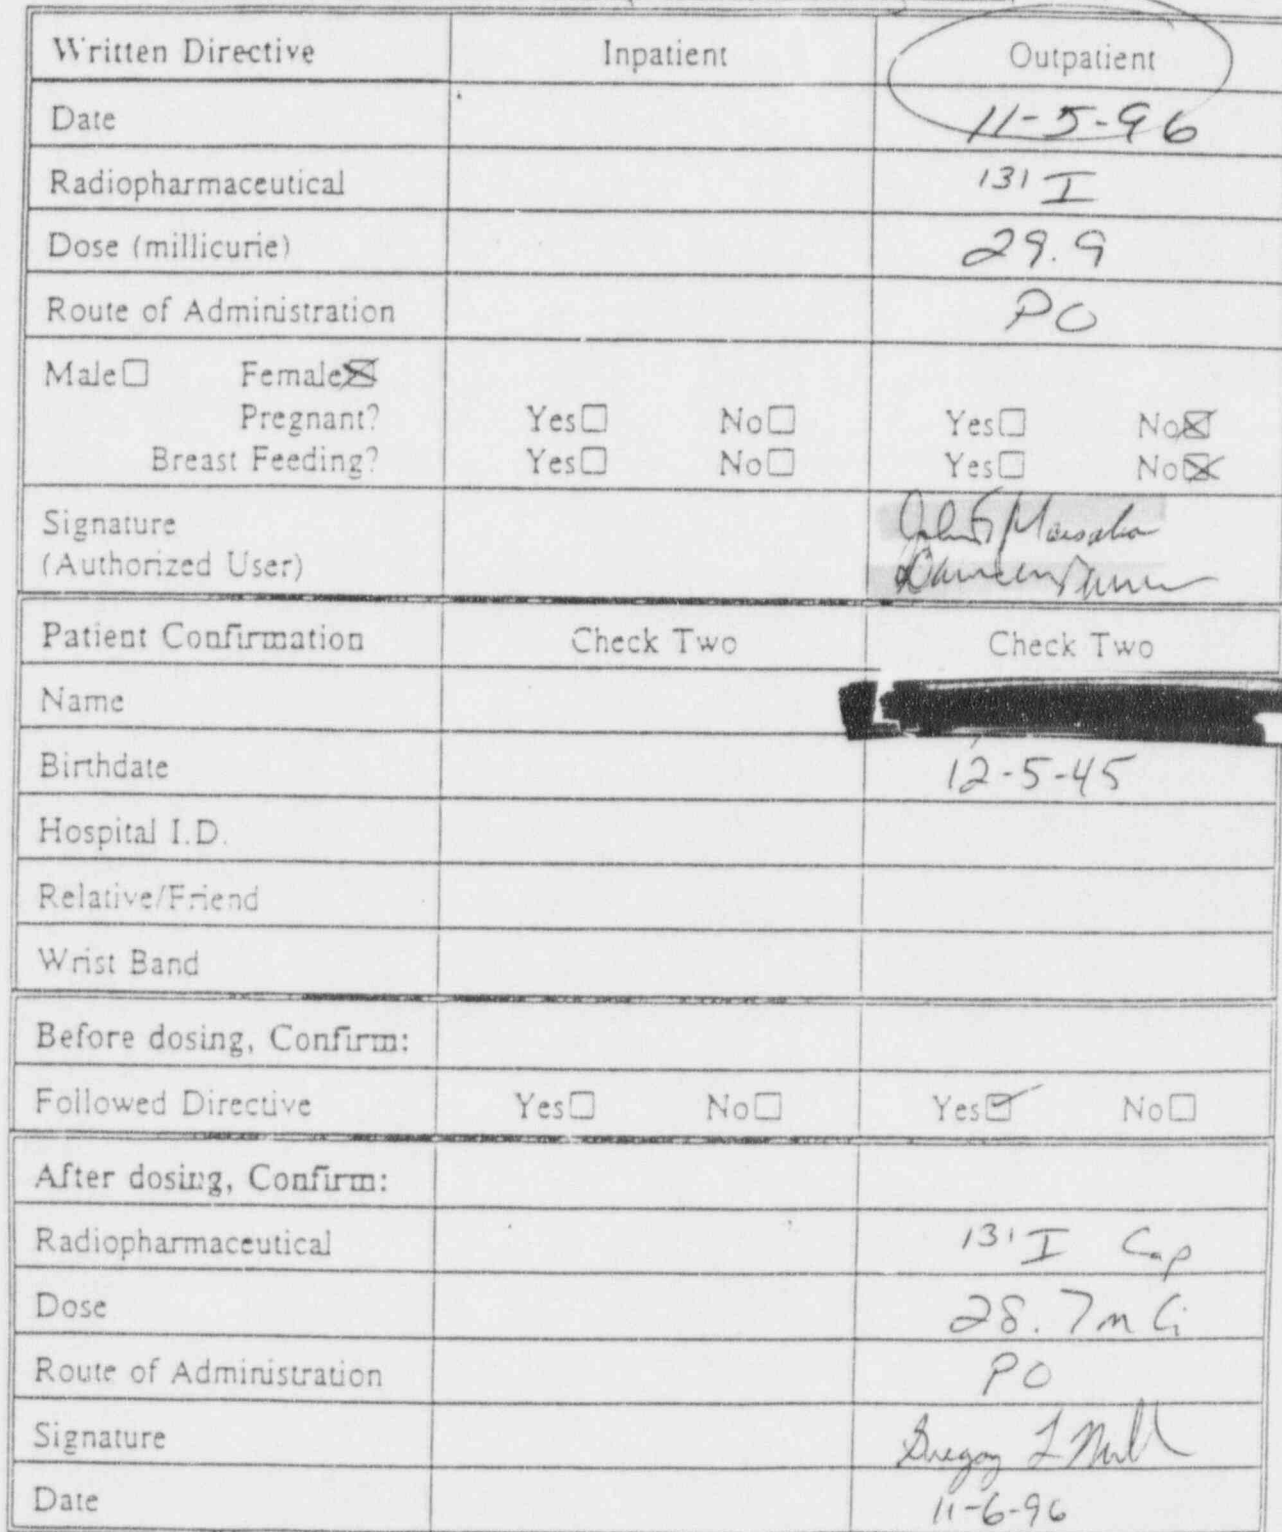 Written Directive Inpatient Outpatient
Date 11-5-96
Radiopharmaceutical 131 I
Dose (millicurie) 29.9
Route of Administration PO
Male☐ Female☒
Pregnant? Yes☐ No☐ Yes☐ No☒
Breast Feeding? Yes☐ No☐ Yes☐ No☒
Signature John
(Authorized User)
Patient Confirmation Check Two Check Two
Name
Birthdate 12-5-45
Hospital I.D.
Relative/Friend
Wrist Band
Before dosing, Confirm:
Followed Directive Yes☐ No☐ Yes☑ No☐
After dosing, Confirm:
Radiopharmaceutical 131 I Cap
Dose 28.7 mCi
Route of Administration PO
Signature Gregory L
Date 11-6-96